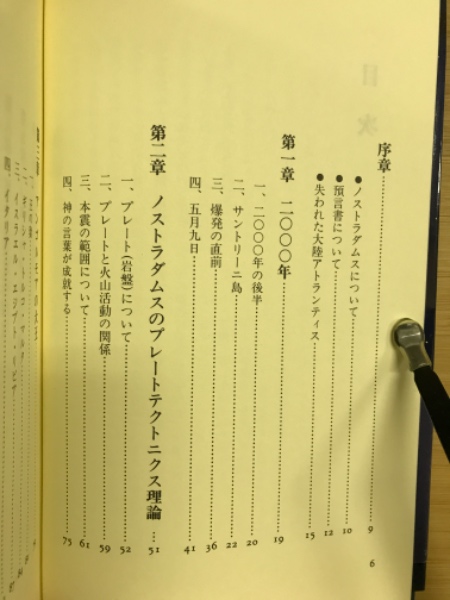 目次
序章……9
●ノストラダムスについて……10
●預言書について……12
●失われた大陸アトランティス……15
第一章 二〇〇〇年……19
一、二〇〇〇年の後半……20
二、サントリーニ島……22
三、爆発の直前……36
四、五月九日……41
第二章 ノストラダムスのプレートテクトニクス理論……51
一、プレート(岩盤)について……52
二、プレートと火山活動の関係……59
三、本震の範囲について……61
四、神の言葉が成就する……75
6
アンゴルモアの大王
三、イスラエル、エジプト、リビア
四、イタリア